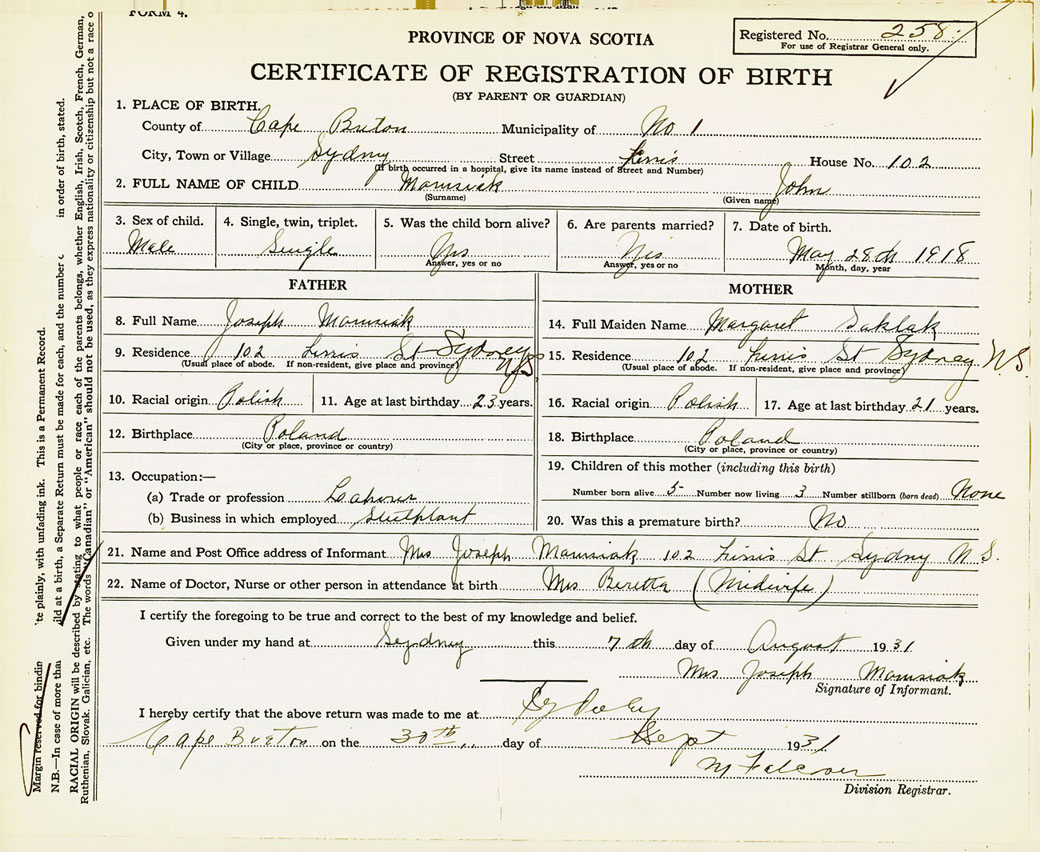 FORM 4.
PROVINCE OF NOVA SCOTIA
Registered No. 258
For use of Registrar General only.
CERTIFICATE OF REGISTRATION OF BIRTH
(BY PARENT OR GUARDIAN)
1. PLACE OF BIRTH.
County of Cape Breton Municipality of No 1
City, Town or Village Sydney Street House No. 102
(If birth occurred in a hospital, give its name instead of Street and Number)
2. FULL NAME OF CHILD Mamsiak John
(Surname) (Given name)
3. Sex of child. 4. Single, twin, triplet. 5. Was the child born alive? 6. Are parents married? 7. Date of birth.
Male Single Yes Yes May 28th 1918
Answer, yes or no Answer, yes or no Month, day, year
FATHER
8. Full Name Joseph Mamsiak
9. Residence 102 St Sydney N.S.
(Usual place of abode. If non-resident, give place and province)
10. Racial origin Polish 11. Age at last birthday 23 years.
12. Birthplace Poland
(City or place, province or country)
13. Occupation:—
(a) Trade or profession Labourer
(b) Business in which employed Steelplant
MOTHER
14. Full Maiden Name Margaret Saklak
15. Residence 102 St Sydney N.S.
(Usual place of abode. If non-resident, give place and province)
16. Racial origin Polish 17. Age at last birthday 21 years.
18. Birthplace Poland
(City or place, province or country)
19. Children of this mother (including this birth)
Number born alive 5 Number now living 3 Number stillborn (born dead) None
20. Was this a premature birth? No
21. Name and Post Office address of Informant Mrs Joseph Mamsiak 102 St Sydney N S.
22. Name of Doctor, Nurse or other person in attendance at birth Mrs Beretta (Midwife)
I certify the foregoing to be true and correct to the best of my knowledge and belief.
Given under my hand at Sydney this 7th day of August 1931
Mrs Joseph Mamsiak
Signature of Informant.
I hereby certify that the above return was made to me at Sydney
Cape Breton on the 30th day of Sept 1931
Division Registrar.
Margin reserved for bindin
N.B.—In case of more that ild at a birth, a Separate Return must be made for each, and the number in order of birth, stated.
te plainly, with unfading ink. This is a Permanent Record.
RACIAL ORIGIN will be described by stating to what people or race each of the parents belongs, whether English, Irish, Scotch, French, German,
Ruthenian, Slovak, Galician, etc. The words "Canadian" or "American" should not be used, as they express nationality or citizenship but not a race o